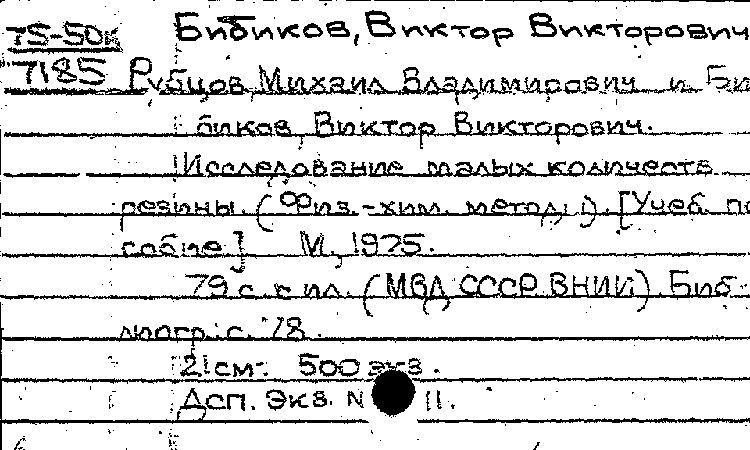 75-50к Бибиков, Виктор Викторович
7185 Рубцов, Михаил Владимирович и Би
биков, Виктор Викторович.
Исследование малых количеств
резины. (Физ.-хим. методы). [Учеб. по
собие] М., 1975.
79 с. с ил. (МВД СССР. ВНИИ) Биб-
лиогр.: с. 78.
21 см. 500 экз.
Дсп. Экз. N 11.